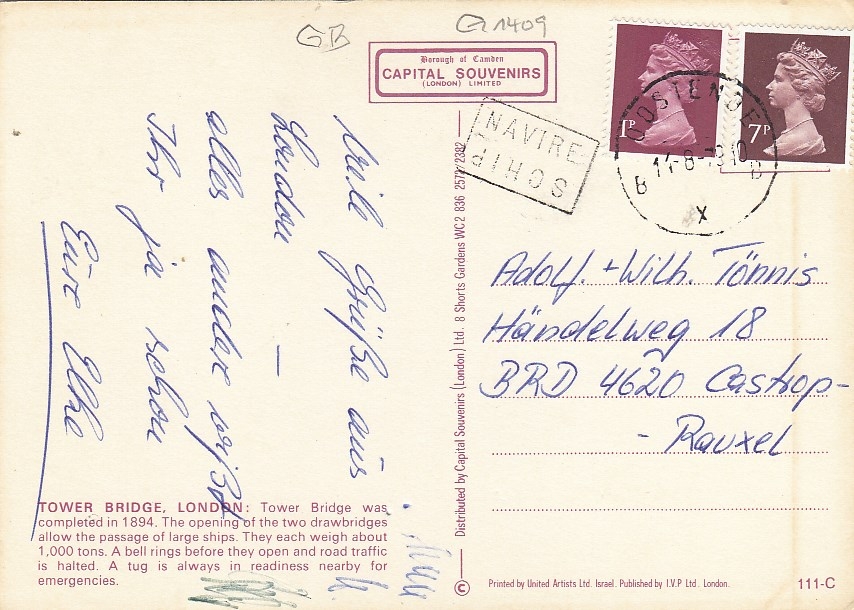 GB
Q 1409
Borough of Camden
CAPITAL SOUVENIRS
(LONDON) LIMITED
1P
7P
OOSTENDE
B 14-8-79-10 B
X
NAVIRE
SHIP
SOHIP
Viele Grüße aus
London —
alles andere wißt
Ihr ja schon
Eure Elke
Adolf. + Wilh. Tönnis
Händelweg 18
BRD 4620 Castrop-
- Rauxel
TOWER BRIDGE, LONDON: Tower Bridge was
completed in 1894. The opening of the two drawbridges
allow the passage of large ships. They each weigh about
1,000 tons. A bell rings before they open and road traffic
is halted. A tug is always in readiness nearby for
emergencies.
Distributed by Capital Souvenirs (London) Ltd. 8 Shorts Gardens WC2 836 2579/2382
©
Printed by United Artists Ltd. Israel. Published by I.V.P Ltd. London.
111-C